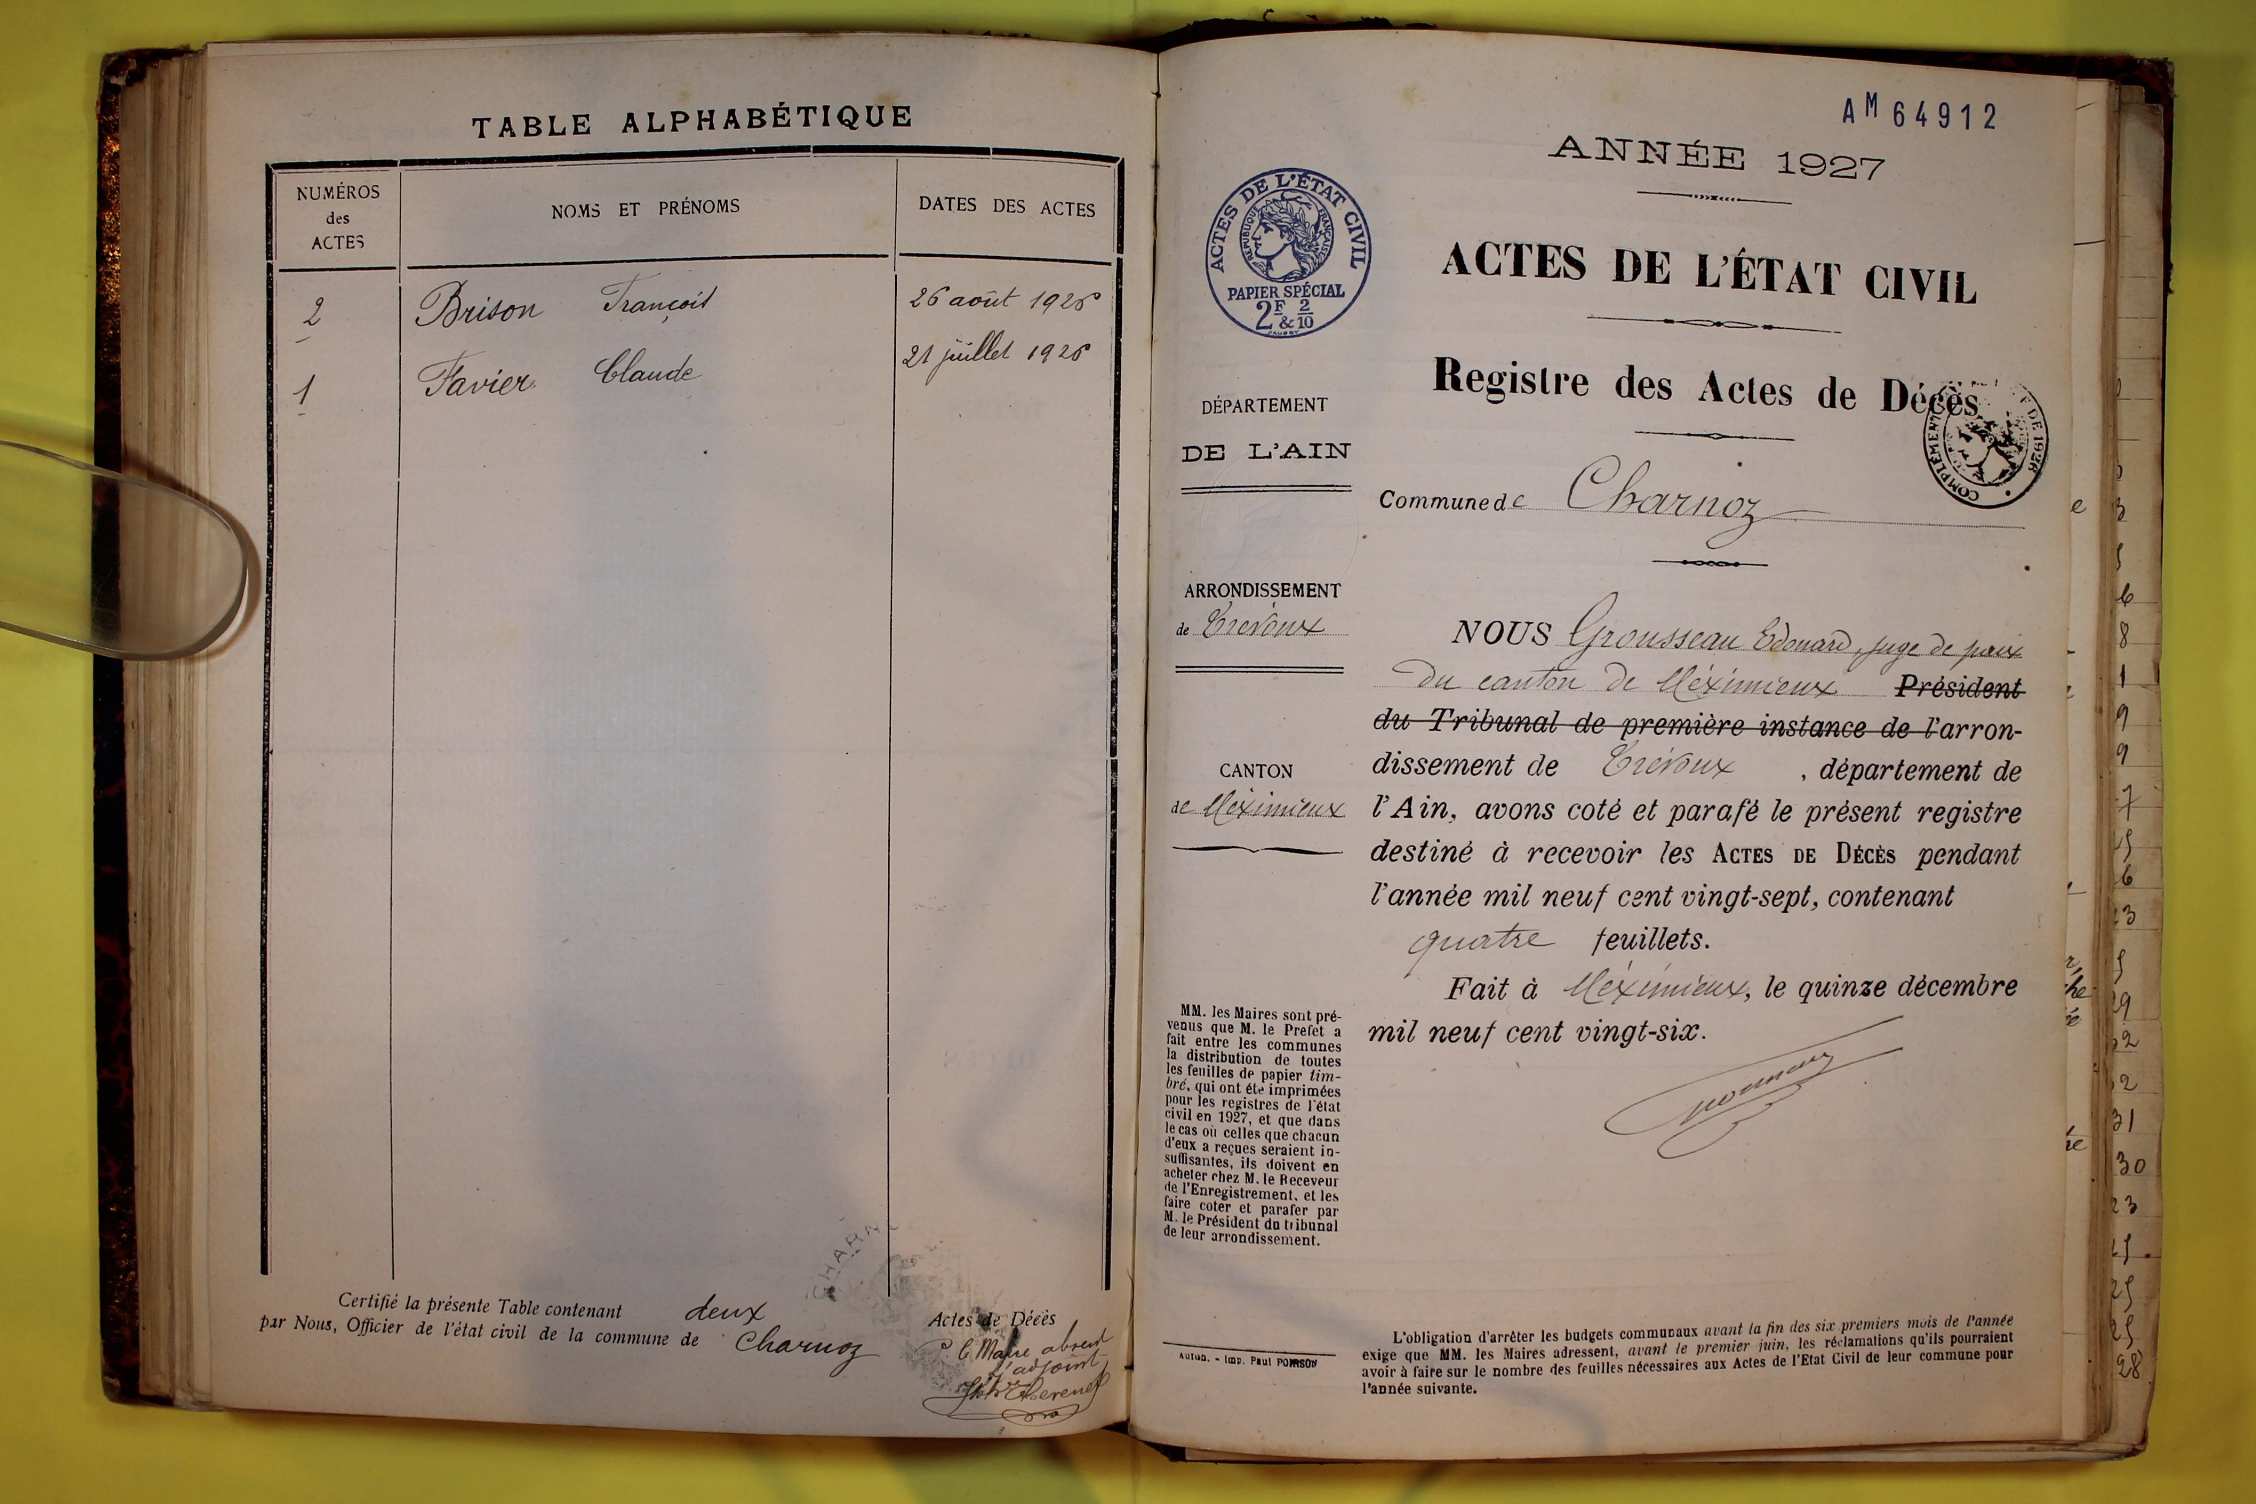 TABLE ALPHABÉTIQUE
NUMÉROS
des
ACTES
NOMS ET PRÉNOMS
DATES DES ACTES
2 Brison François 26 août 1926
1 Favier Claude 21 juillet 1926
Certifié la présente Table contenant deux Actes de Décès
par Nous, Officier de l'état civil de la commune de Charnoz
P. le Maire absent
l'adjoint
CHARN
AM 64912
ANNÉE 1927
ACTES DE L'ÉTAT CIVIL
RÉPUBLIQUE FRANÇAISE
PAPIER SPÉCIAL
2F & 2/10
ACTES DE L'ÉTAT CIVIL
Registre des Actes de Décès
COMPLÉMENT DE 1926
DÉPARTEMENT
DE L'AIN
Commune de Charnoz
ARRONDISSEMENT
de Trévoux
CANTON
de Méximieux
NOUS Grousseau Edouard, juge de paix
du canton de Méximieux Président
du Tribunal de première instance de l'arron-
dissement de Trévoux, département de
l'Ain, avons coté et parafé le présent registre
destiné à recevoir les ACTES DE DÉCÈS pendant
l'année mil neuf cent vingt-sept, contenant
quatre feuillets.
Fait à Méximieux, le quinze décembre
mil neuf cent vingt-six.
MM. les Maires sont pré-
venus que M. le Préfet a
fait entre les communes
la distribution de toutes
les feuilles de papier tim-
bré, qui ont été imprimées
pour les registres de l'état
civil en 1927, et que dans
le cas où celles que chacun
d'eux a reçues seraient in-
suffisantes, ils doivent en
acheter chez M. le Receveur
de l'Enregistrement, et les
faire coter et parafer par
M. le Président du tribunal
de leur arrondissement.
Autun. - Imp. Paul POIRSON
L'obligation d'arrêter les budgets communaux avant la fin des six premiers mois de l'année
exige que MM. les Maires adressent, avant le premier juin, les réclamations qu'ils pourraient
avoir à faire sur le nombre des feuilles nécessaires aux Actes de l'Etat Civil de leur commune pour
l'année suivante.